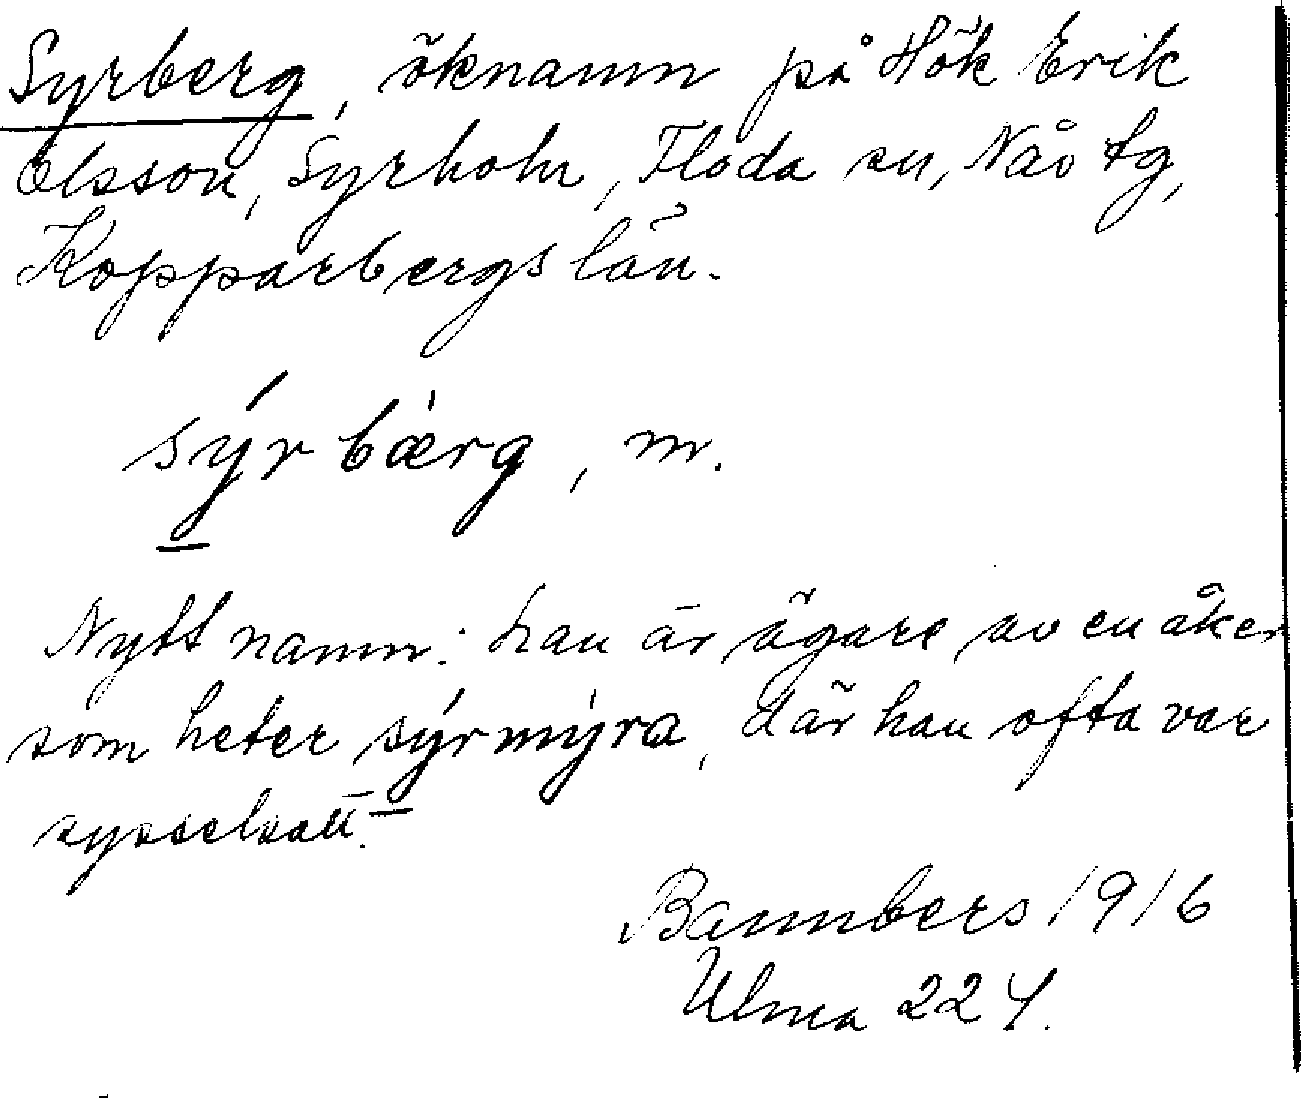 Syrberg, öknamn på Hök Erik
Olsson, Syrholn, Floda sn, Nås tg,
Kopparbergs län.
sýrbærg, m.
Nytt namn: han är ägare av en åker
som heter sýrmýra, där han ofta var
sysselsatt.
Bannbers 1916
Ulma 224.